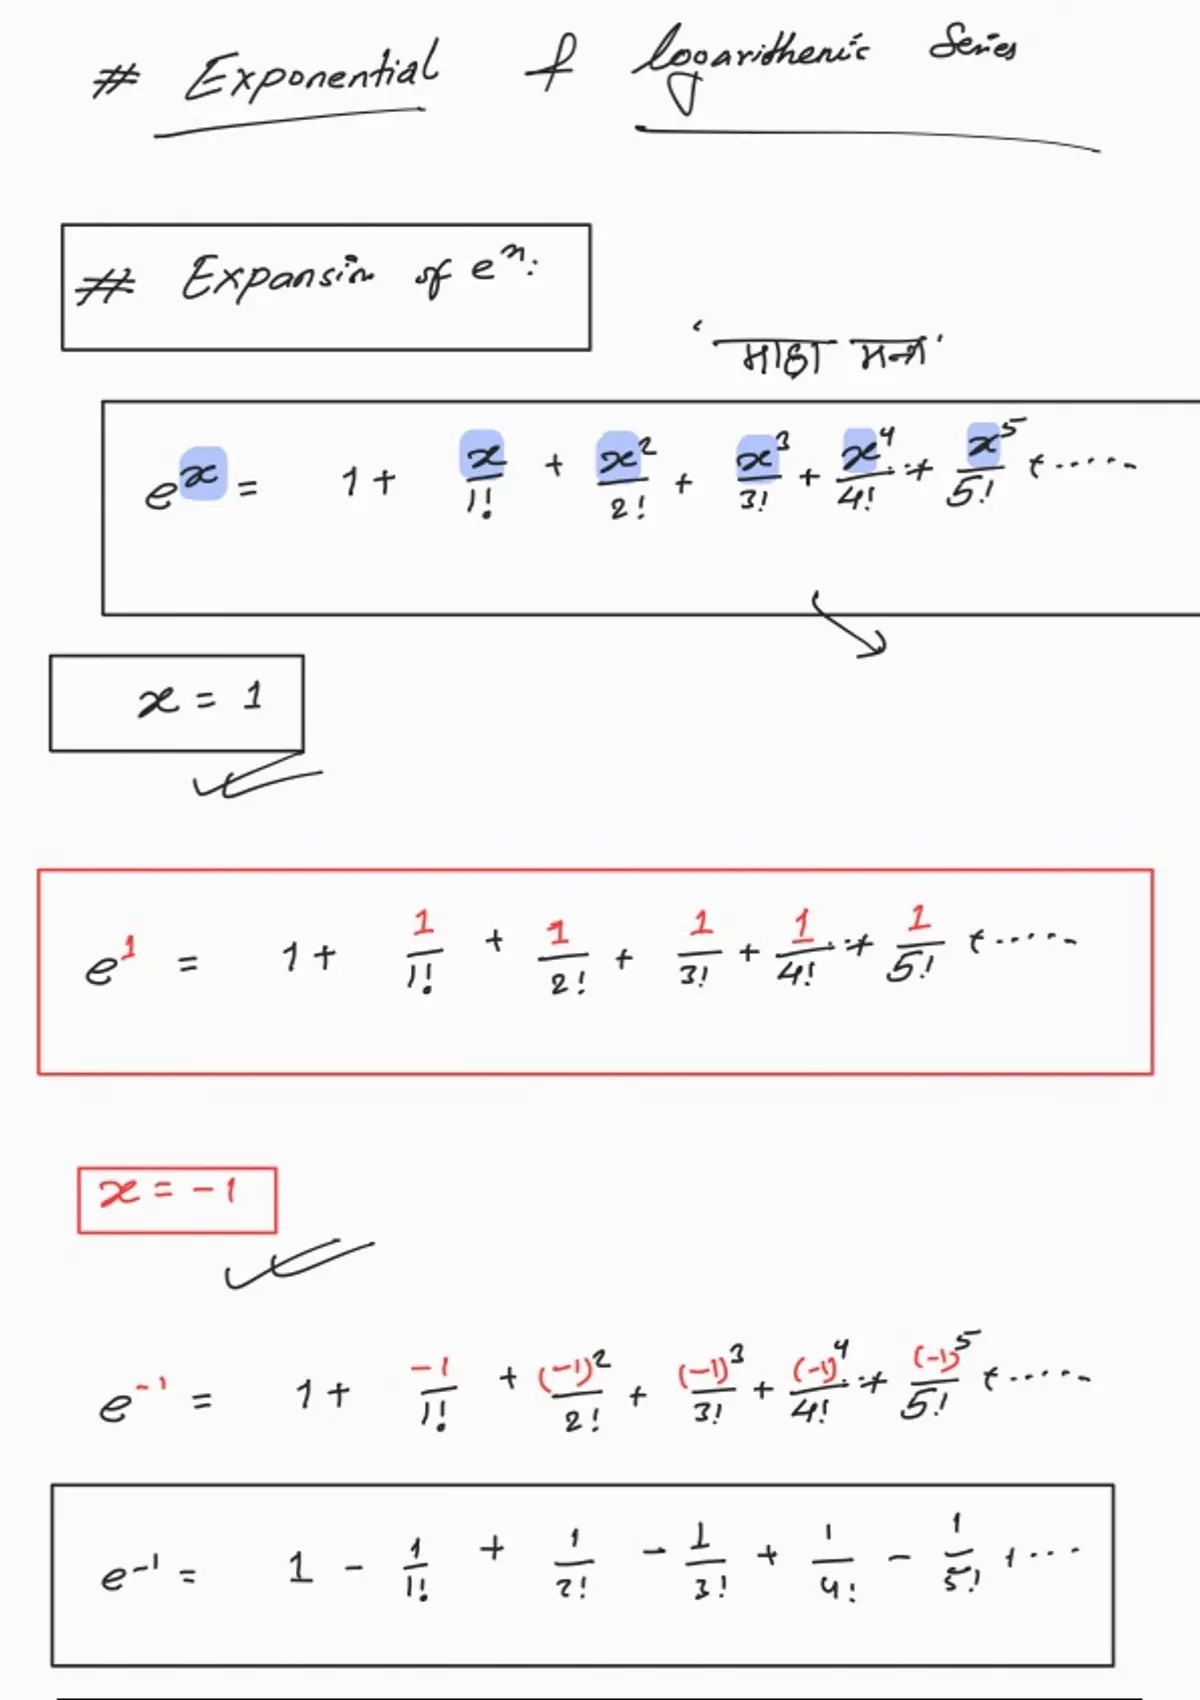 # Exponential & logarithenic Series
# Expansion of eˣ:
e^x = 1 + x/1! + x²/2! + x³/3! + x⁴/4! ..+ x⁵/5! + .....
x = 1
e¹ = 1 + 1/1! + 1/2! + 1/3! + 1/4! ..+ 1/5! + .....
x = -1
e⁻¹ = 1 + -1/1! + (-1)²/2! + (-1)³/3! + (-1)⁴/4! ..+ (-1)⁵/5! + .....
e⁻¹ = 1 - 1/1! + 1/2! - 1/3! + 1/4! - 1/5! + ...